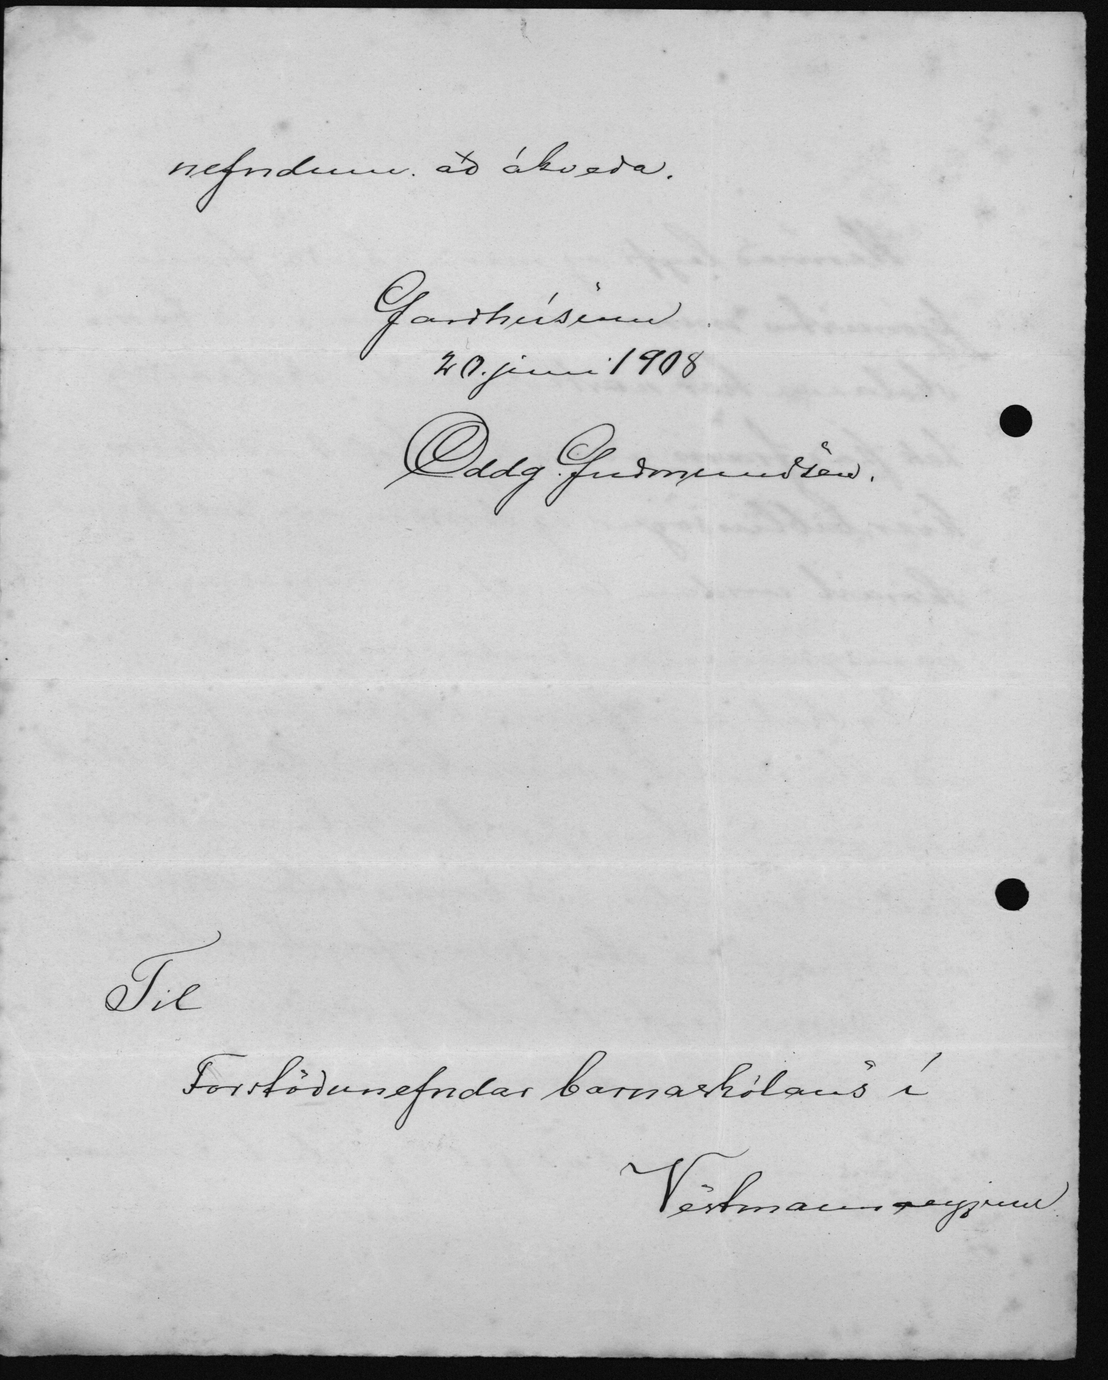 nefndum að ákveda.
Gardhúsum
20. juni 1908
Oddg. Gudmundsen.
Til
Forstödunefndar barnaskólans í
Vestmannaeyjum